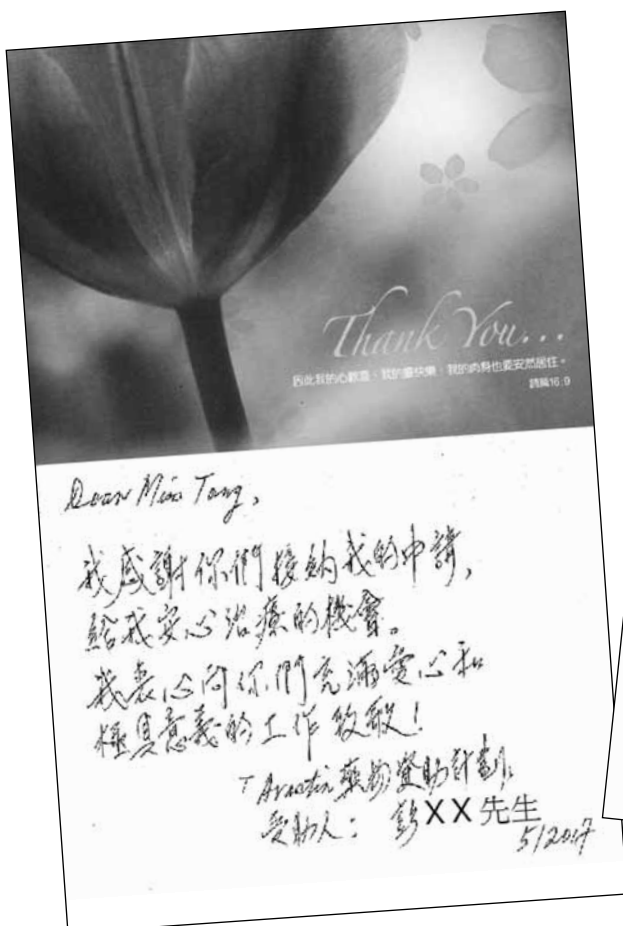 Thank You...
因此我的心歡喜，我的靈快樂，我的肉身也要安然居住。
詩篇16:9
Dear Miss Tang,
我感謝你們接納我的申請，
給我安心治療的機會。
我衷心向你們充滿愛心和
極具意義的工作致敬！
「Avastin 藥物資助計劃」
受助人：彭XX先生
5/2017